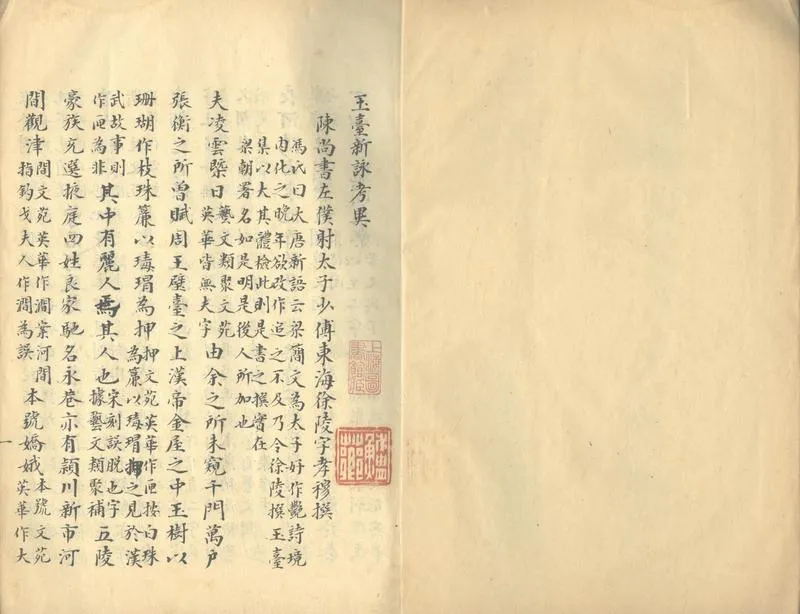 玉臺新詠考異
陳尚書左僕射太子少傅東海徐陵字孝穆撰
馮氏曰大唐新語云梁簡文為太子好作艷詩境
內化之晚年欲改作追之不及乃令徐陵撰玉臺
集以大其體檢此則是書之撰實在
梁朝署名如是明是後人所加也
夫凌雲槩日藝文類聚文苑英華皆無夫字由余之所未窺千門萬戶
張衡之所曾賦周王璧臺之上漢帝金屋之中玉樹以
珊瑚作枝珠簾以瑇瑁為押押文苑英華作匣按白珠為簾以瑇瑁押之見於漢
武故事則作匣為非其中有麗人焉其人也宋刻誤脫也字據藝文類聚補五陵
豪族充選掖庭四姓良家馳名永巷亦有潁川新市河
間觀津間文苑英華作澗案河間指鈎戈夫人作澗為誤本號嬌娥本號文苑英華作大
一
上海圖書館藏